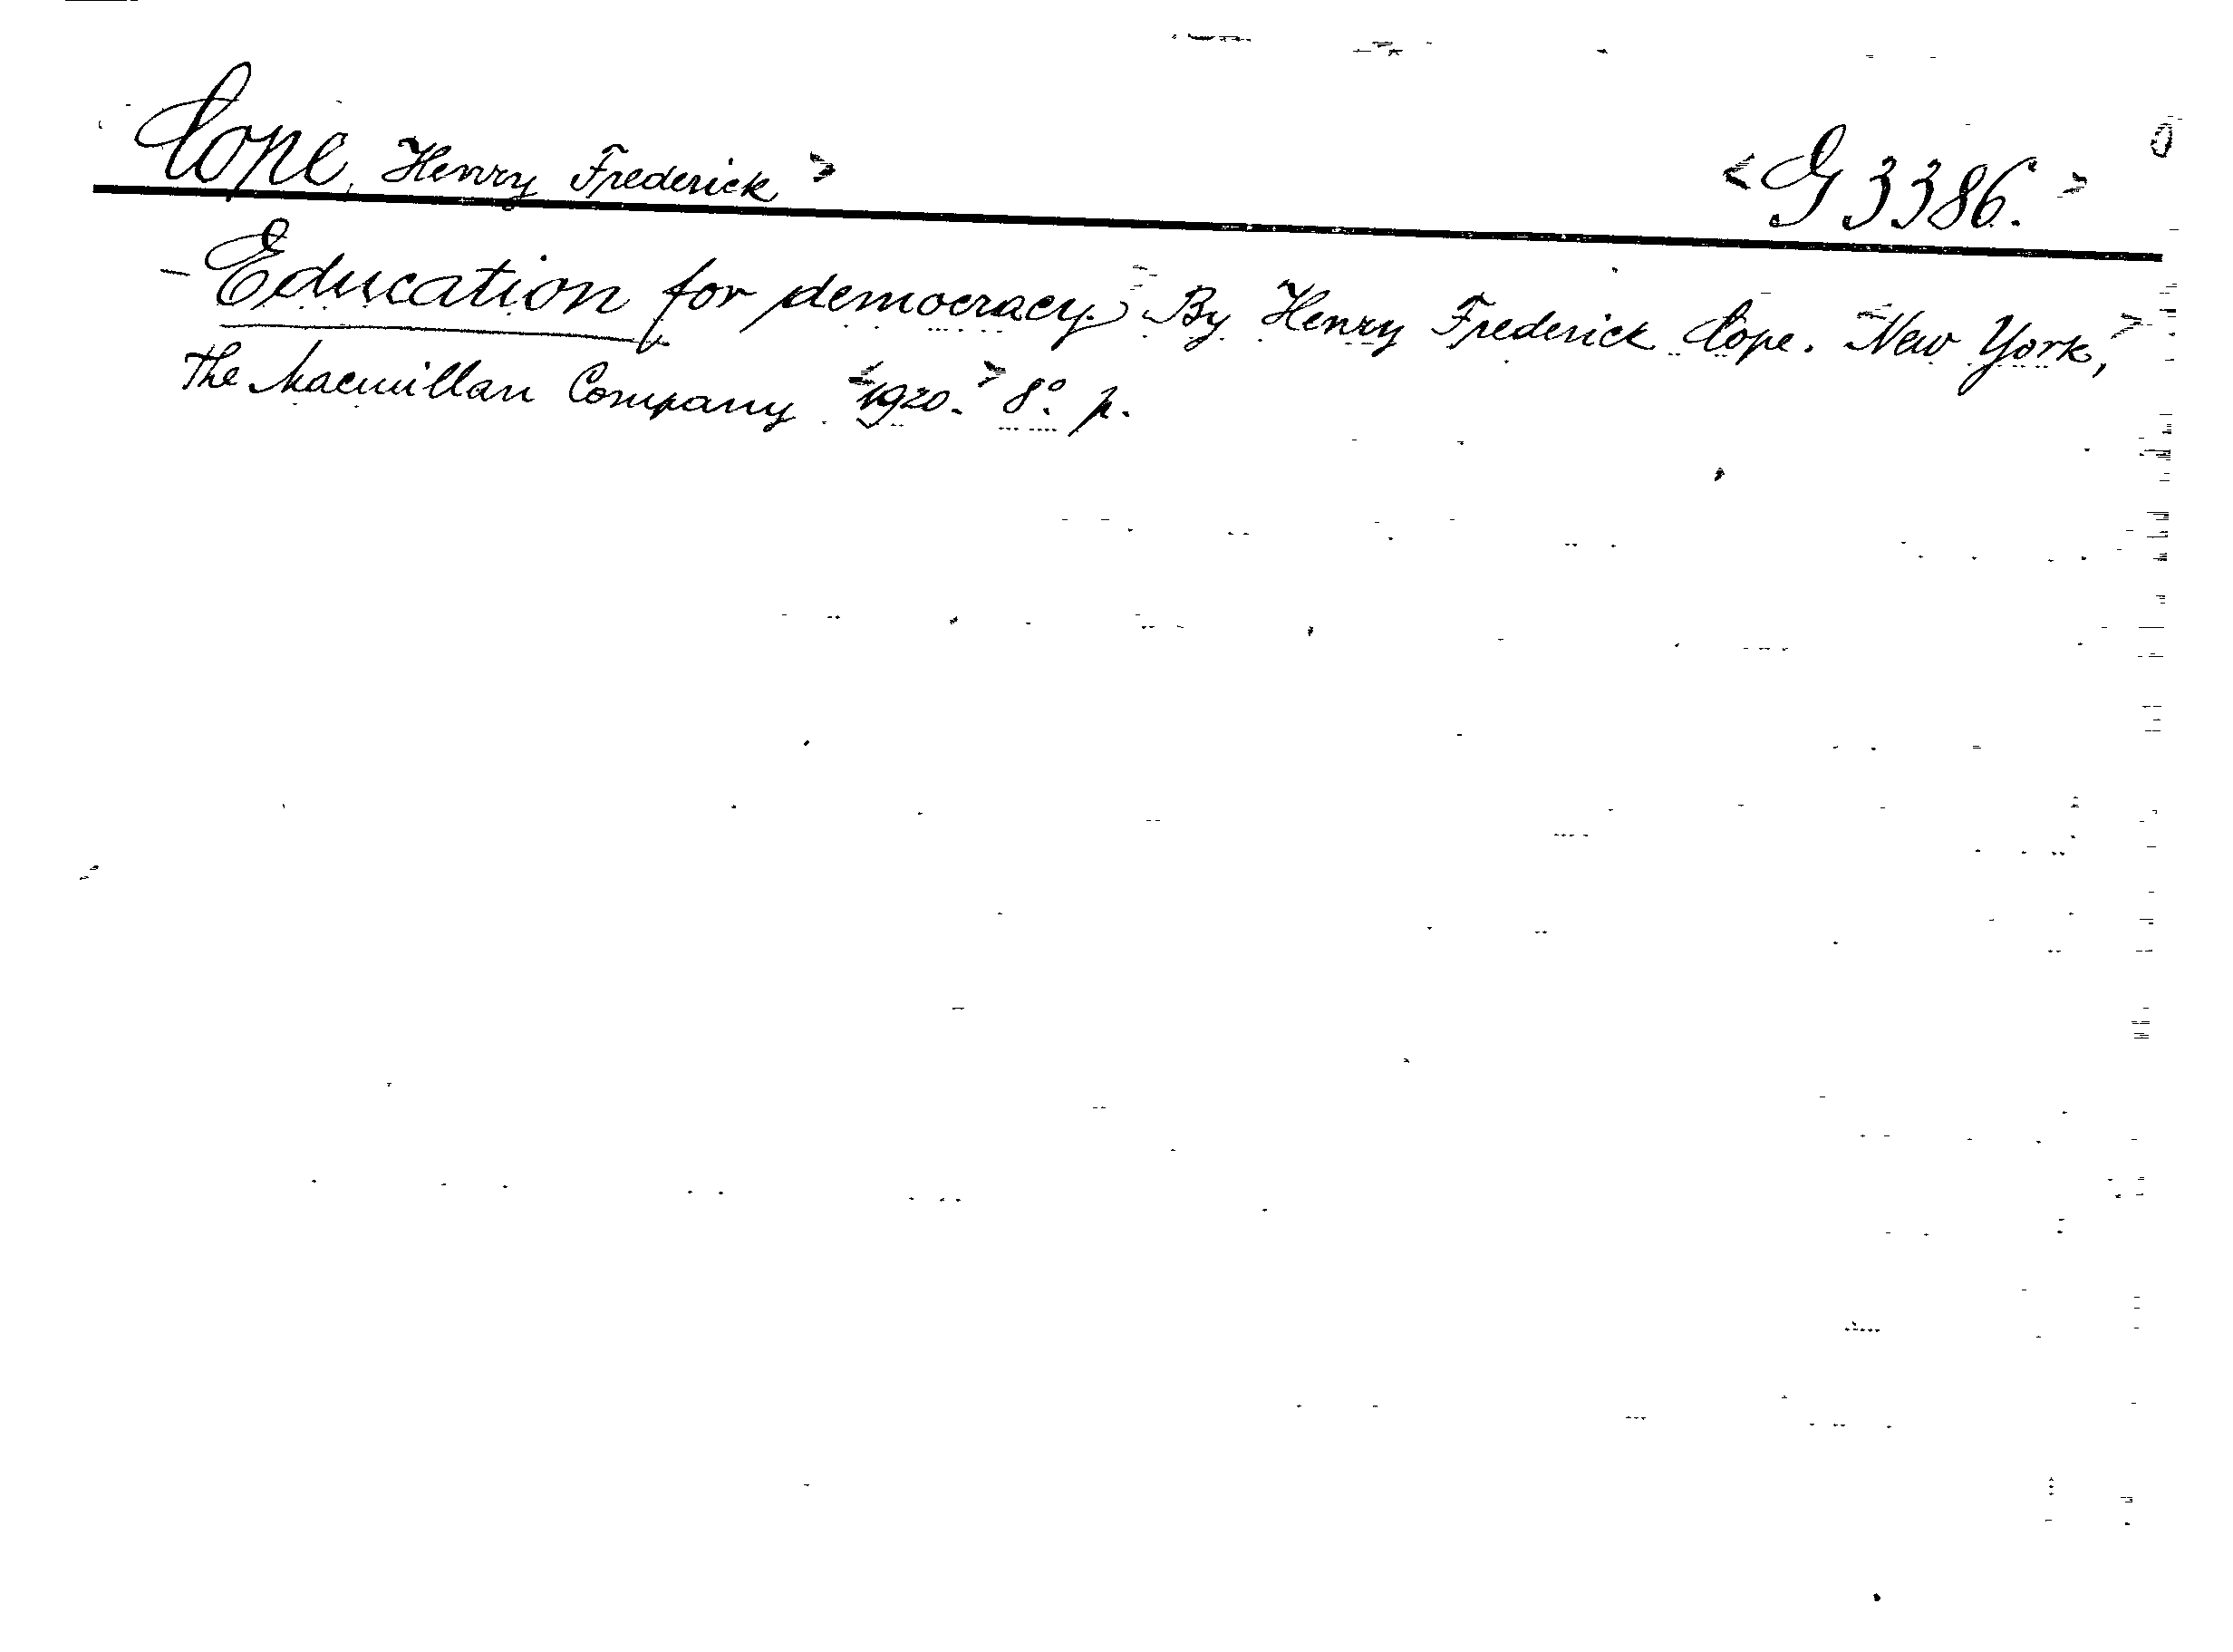 Cope, Henry Frederick > < G 3386. >
- Education for democracy. By Henry Frederick Cope. < New York, >
The Macmillan Company < 1920. > 8°. p.